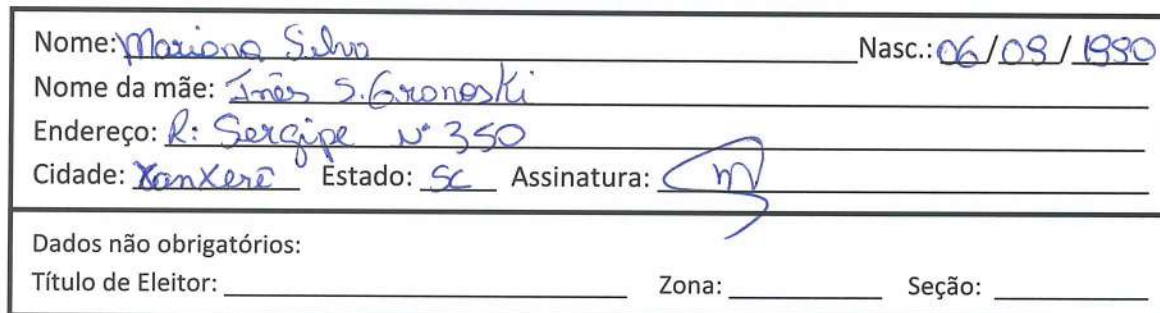 Nome: Mariana Silva Nasc.: 06/09/1990
Nome da mãe: Inês S. Gronoski
Endereço: R: Sergipe Nº 350
Cidade: Xanxerê Estado: SC Assinatura:
Dados não obrigatórios:
Título de Eleitor: Zona: Seção: